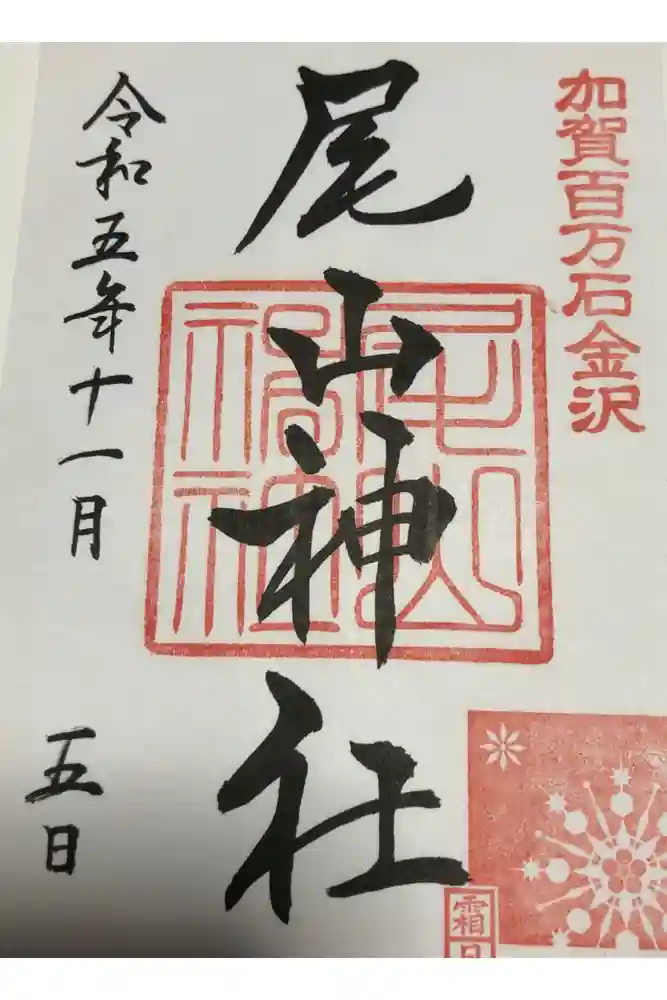 加賀百万石金沢
尾山神社
尾山神社
令和五年十一月
五日
霜月